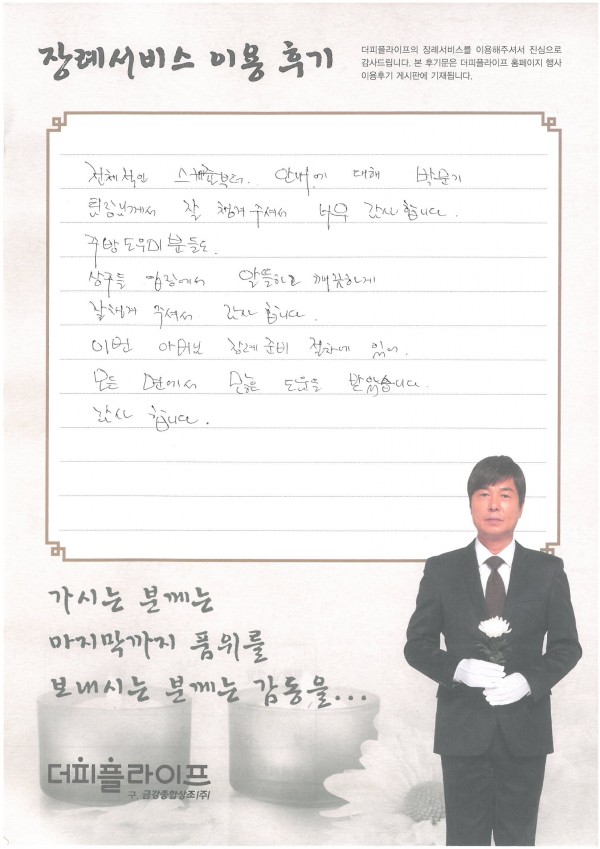 장례서비스 이용 후기
더피플라이프의 장례서비스를 이용해주셔서 진심으로
감사드립니다. 본 후기문은 더피플라이프 홈페이지 행사
이용후기 게시판에 기재됩니다.
전체적인 스케쥴부터. 안내에 대해 박문기
팀장님께서 잘 챙겨주셔서 너무 감사합니다.
주방도우미분들도.
상주들 입장에서 알뜰하고 깨끗하게
잘챙겨 주셔서 감사합니다.
이번 아버님 장례준비 절차에 있어.
모든 면에서 많은 도움을 받았습니다.
감사 합니다.
가시는 분께는
마지막까지 품위를
보내시는 분께는 감동을...
더피플라이프
구. 금강종합상조(주)